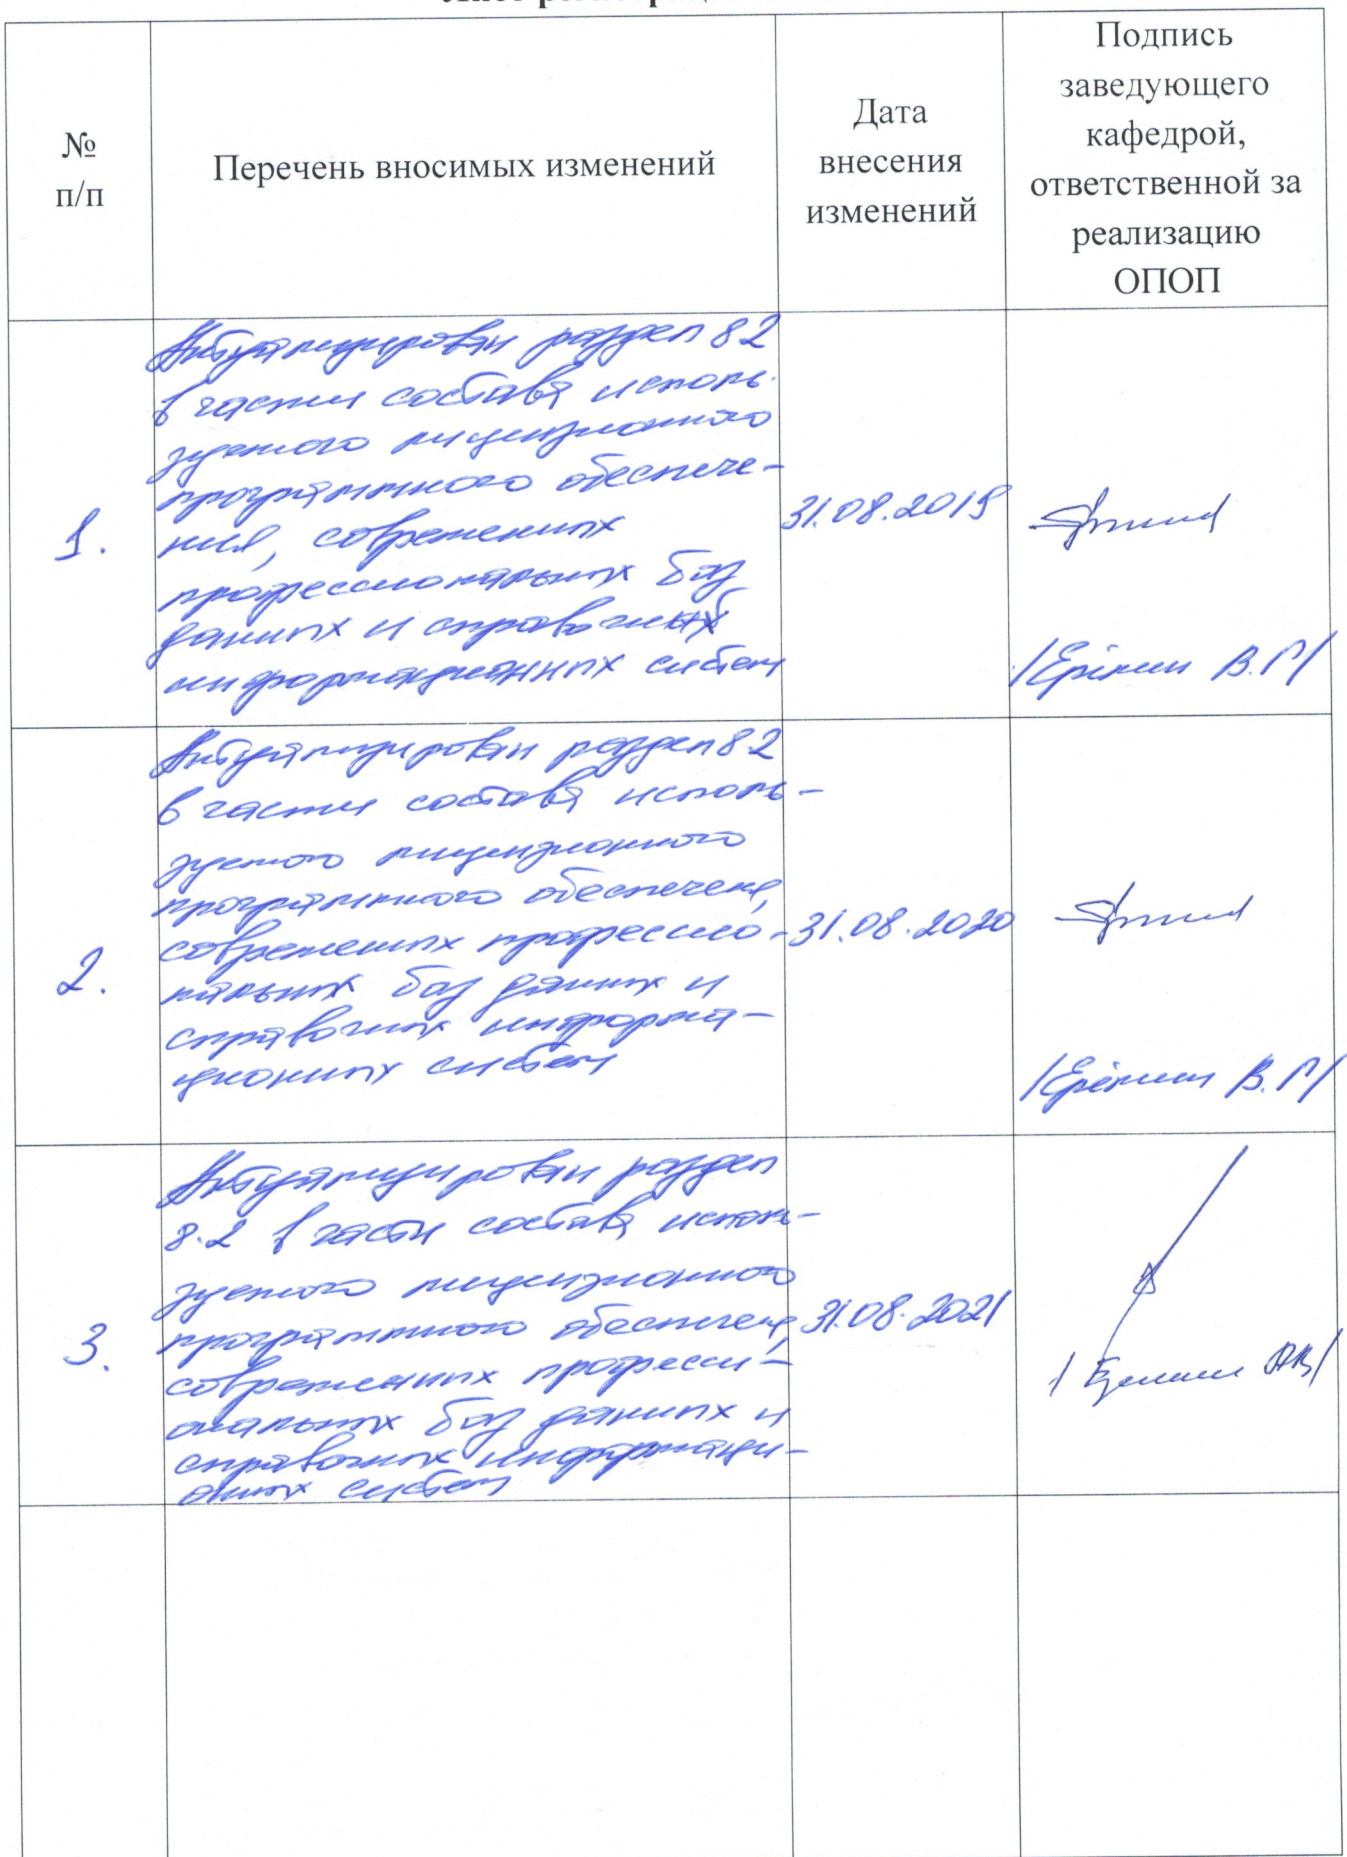 №
п/п
Перечень вносимых изменений
Дата
внесения
изменений
Подпись
заведующего
кафедрой,
ответственной за
реализацию
ОПОП
1.
Актуализирован раздел 8.2
в части состава исполь-
зуемого лицензионного
программного обеспече-
ния, современных
профессиональных баз
данных и справочных
информационных систем
31.08.2019
/Ерёмин В.Г/
2.
Актуализирован раздел 8.2
в части состава исполь-
зуемого лицензионного
программного обеспечения,
современных профессио-
нальных баз данных и
справочных информа-
ционных систем
31.08.2020
/Ерёмин В.Г/
3.
Актуализирован раздел
8.2 в части состава исполь-
зуемого лицензионного
программного обеспечения,
современных професси-
ональных баз данных и
справочных информаци-
онных систем
31.08.2021